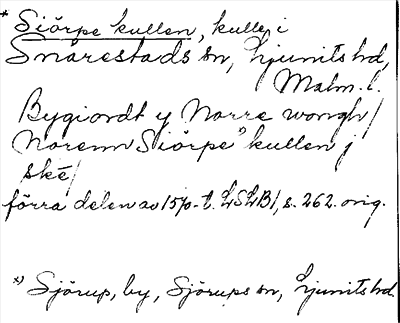 * Siörpe kullen, kulle i
Snårestads sn, Ljunits hd,
Malm. l.
Bygiordt y Norre wongh/
Norenn Siörpe*) kullen j
ske/
förra delen av 1570-t. LSLB1, s. 262. orig.
*) Sjörup, by, Sjörups sn, Ljunits hd.